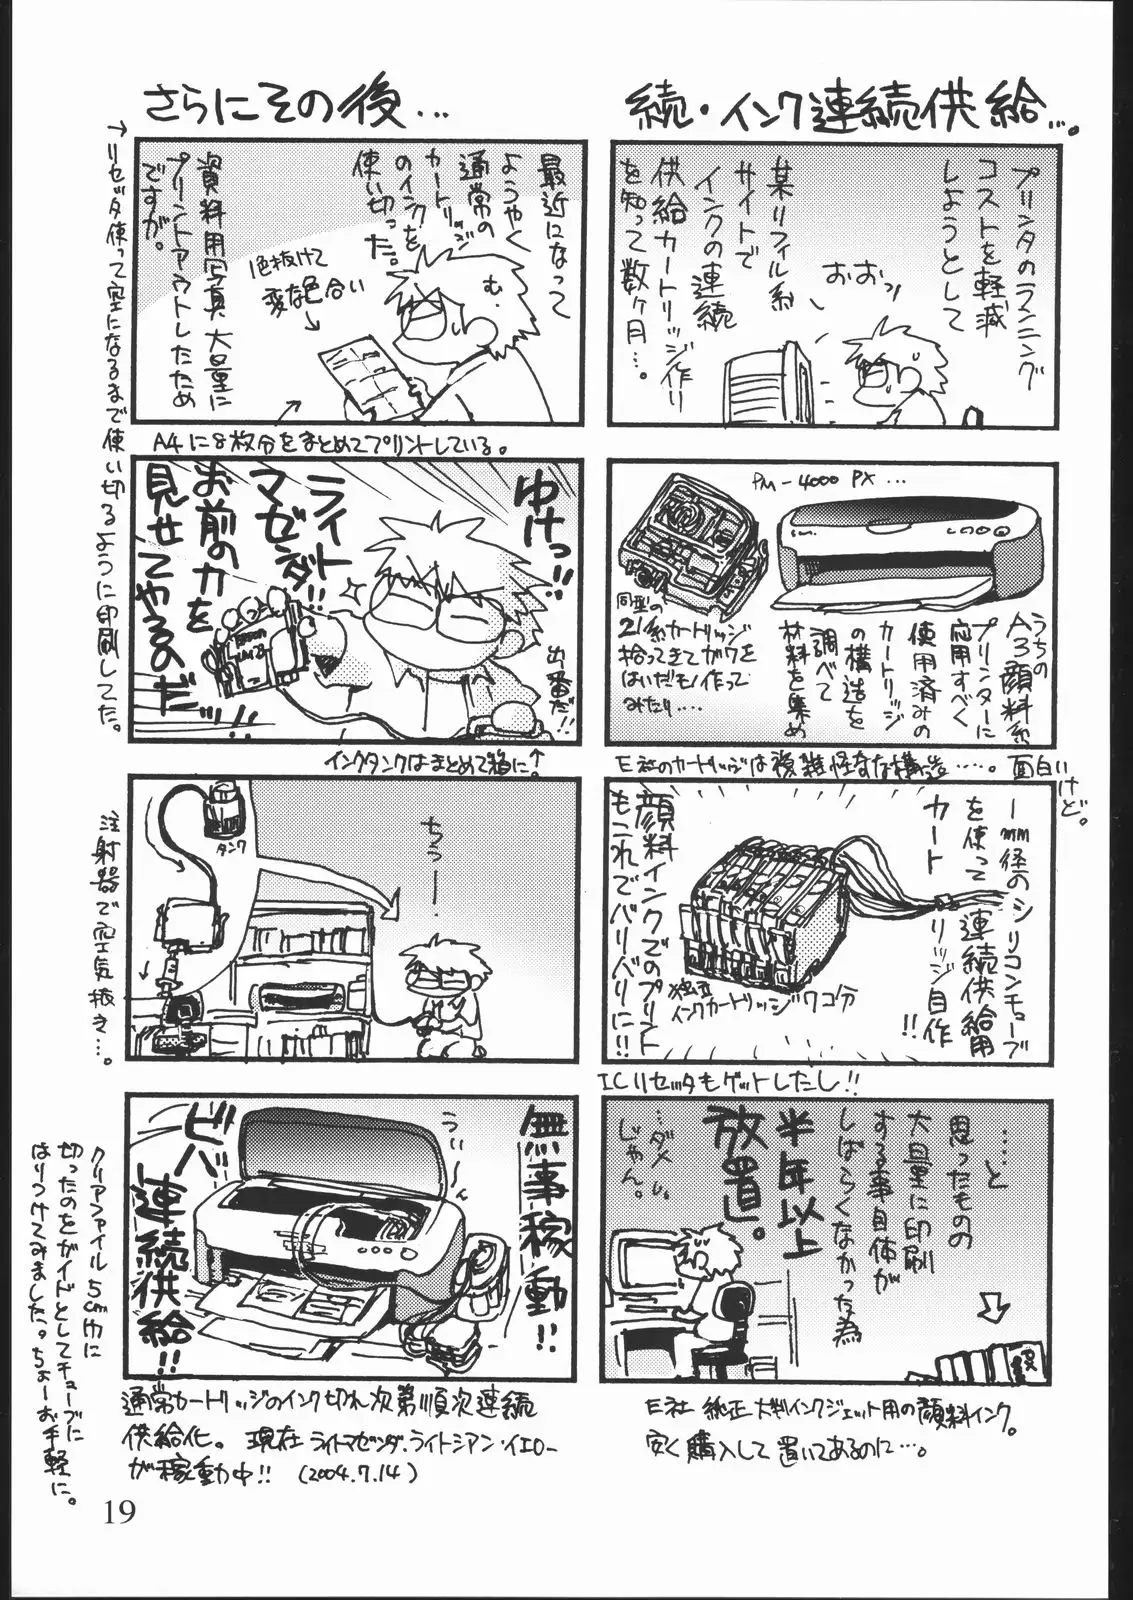 続・インク連続供給…。
プリンタのランニング
コストを軽減
しようとして
某リフィル系
サイトで
インクの連続
供給カートリッジ作り
を知って数ヶ月…。
おおっ
PM-4000PX…
うちの
A3顔料系
プリンターに
応用すべく
使用済みの
カートリッジ
の構造を
調べて
材料を集め
同型の
21系カートリッジ
拾ってきてガワを
はいだもノ作って
みたり….
E社のカートリッジは複雑怪奇な構造……。面白いけど。
1mm径のシリコンチューブ
を使って連続供給用
カートリッジ自作!!
顔料インクでのプリント
もこれでバリバリに!!
独立
インクカートリッジ7コ分
ICリセッタもゲットしたし!!
……と
思ったものの
大量に印刷
する事自体が
しばらくなかった為
半年以上
放置。
…ダメ
じゃん。
E社純正大判インクジェット用の顔料インク。
安く購入して置いてあるのに…。
さらにその後…
最近になって
ようやく
通常の
カートリッジ
のインクを
使い切った。
む.
1色抜けて
変な色合い
資料用写真大量に
プリントアウトしたため
ですが。
→リセッタ使って空になるまで使い切るように印刷してた。
A4に8枚分をまとめてプリントしている。
ゆけっ!!
ライト
マゼンダ!!
お前の力を
見せてやるのだ!!
出番だ!!
インクタンクはまとめて箱に↑
タンク
ちぅー.
注射器で空気抜き…。
無事稼動!!
うぃ〜ん
ビバ
連続供給!!
クリアファイル5cm巾に
切ったのをガイドとしてチューブに
はりつけてみました。ちょーお手軽に。
通常カートリッジのインク切れ次第順次連続
供給化。現在ライトマゼンダ・ライトシアン・イエロー
が稼動中!!(2004.7.14)
19